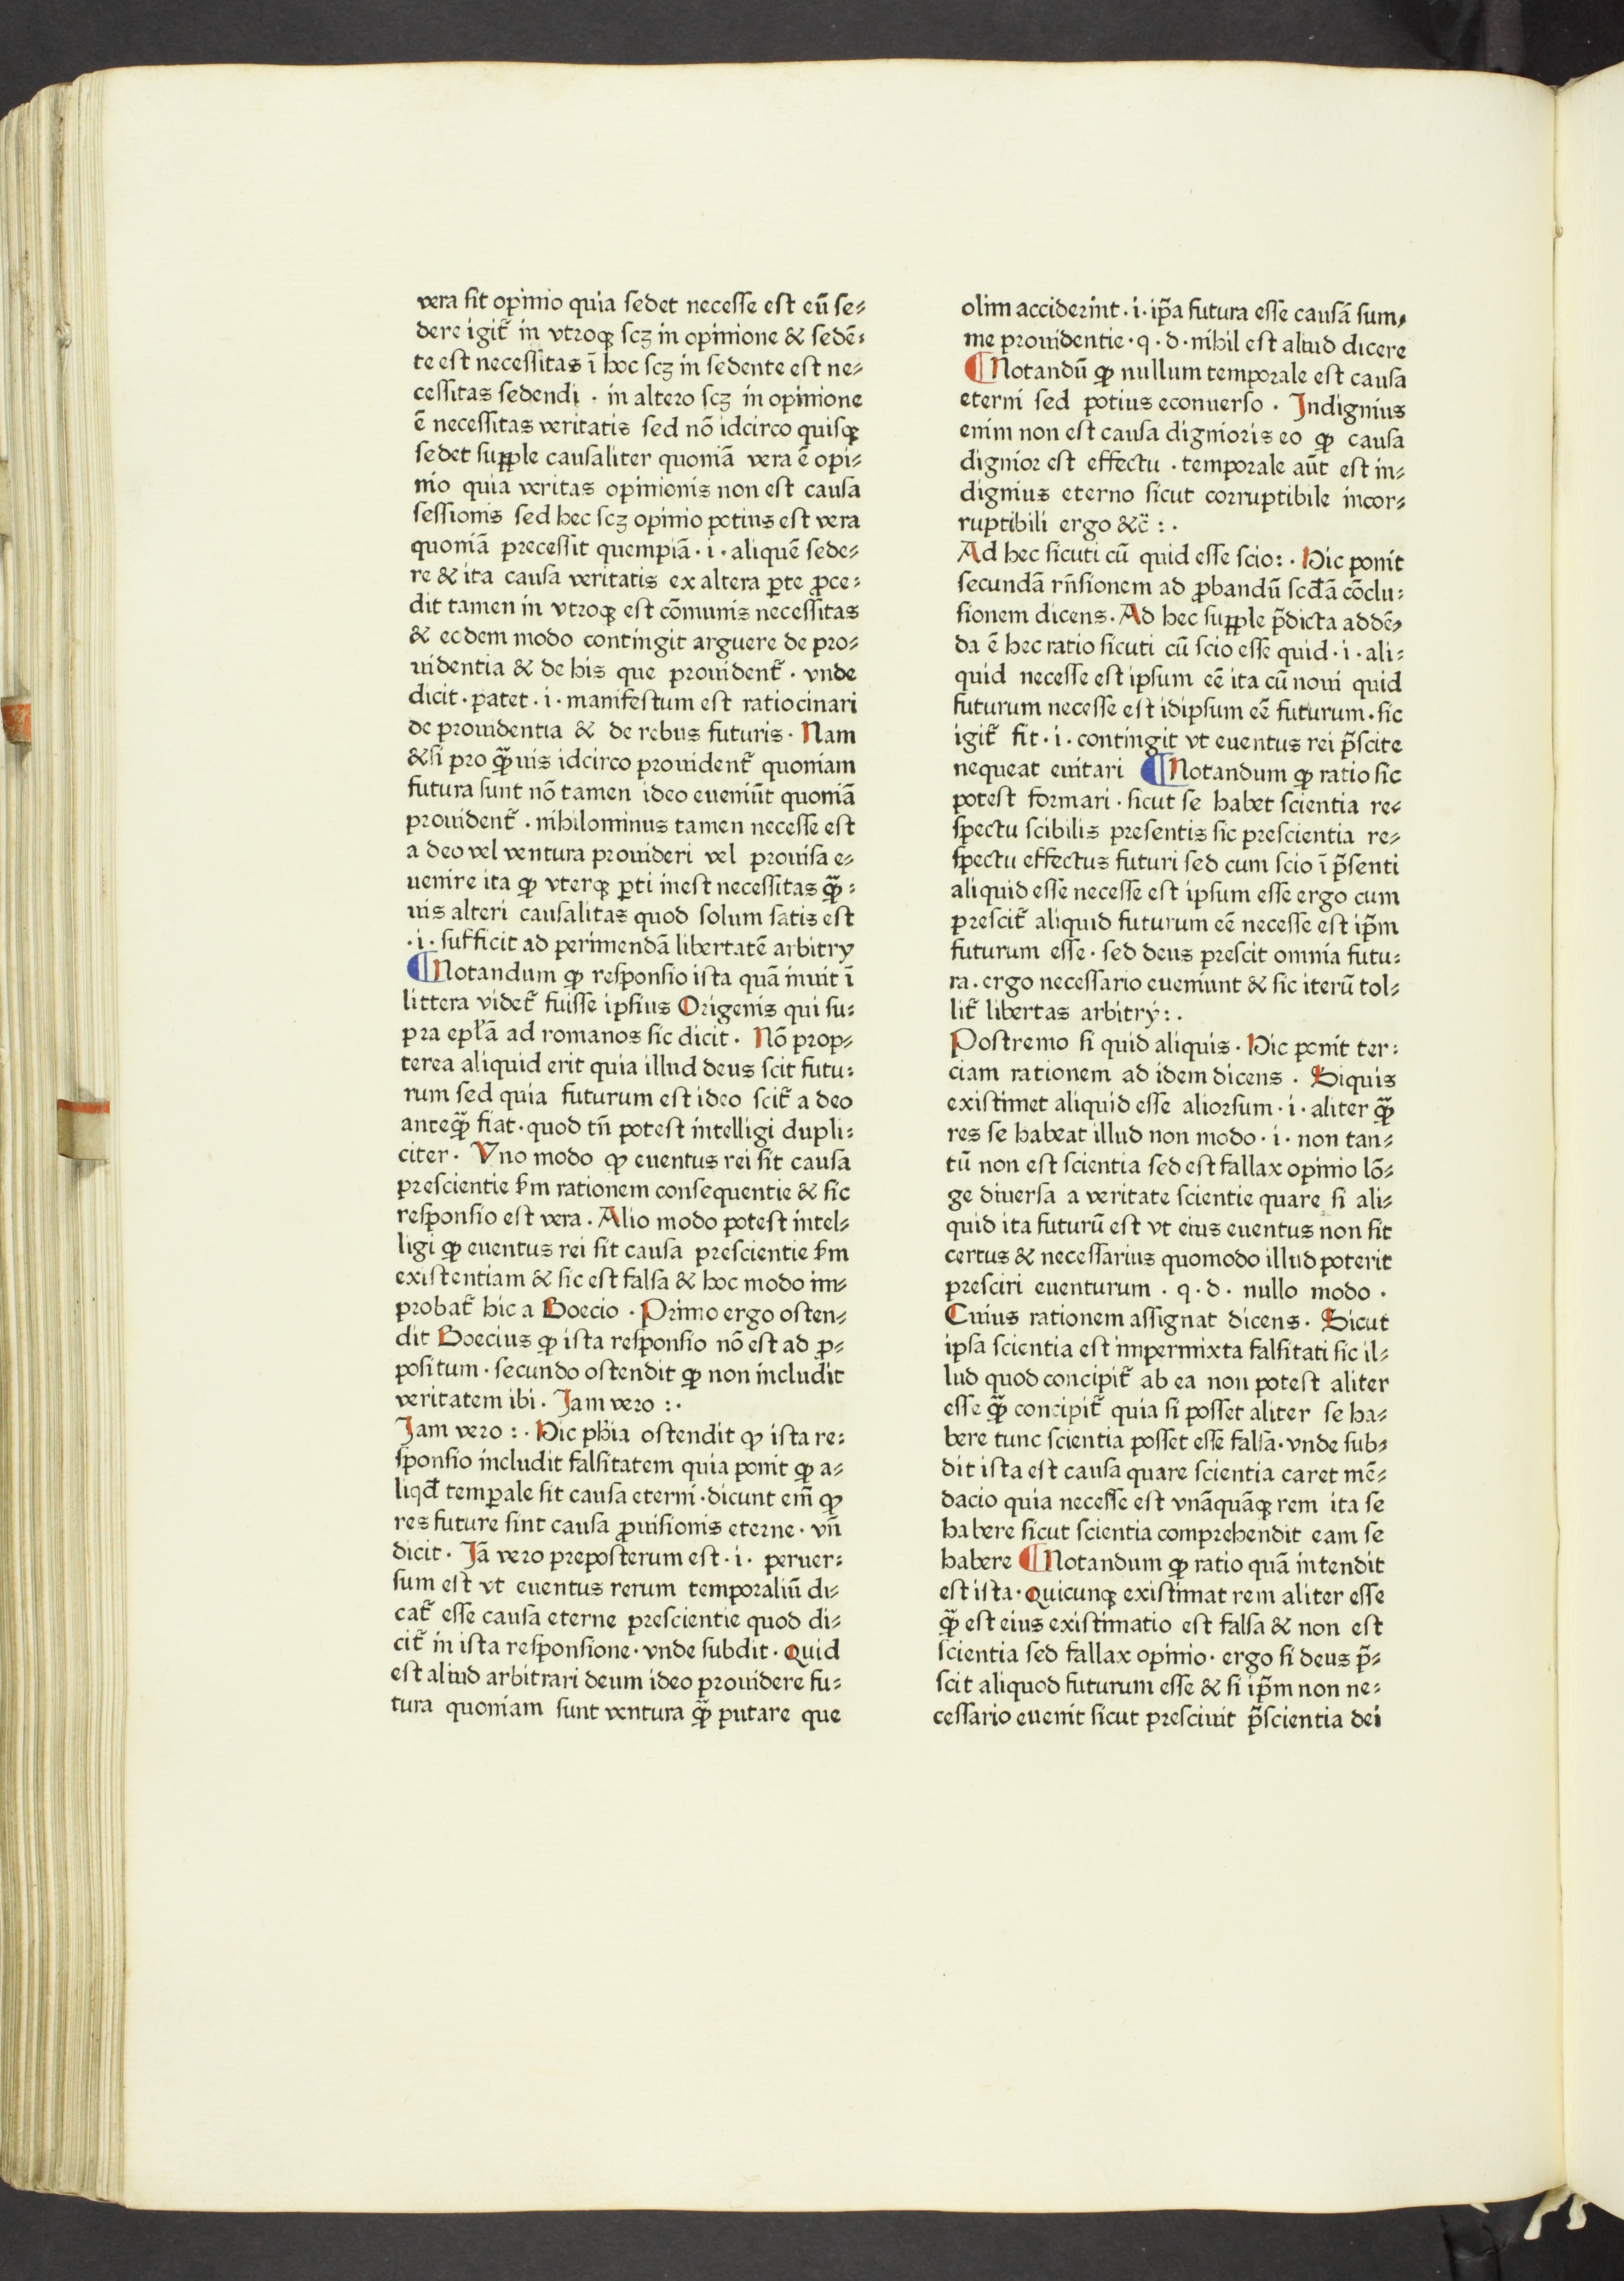 vera ſit opinio quia ſedet neceſſe est eū ſe⸗
dere igit᷑ in vtroqꝫ ſcꝫ in opinione & ſedē⸗
te est neceſſitas ī hoc ſcꝫ in ſedente est ne⸗
ceſſitas ſedendi · in altero ſcꝫ in opinione
ē neceſſitas veritatis ſed nō idcirco quiſqꝫ
ſedet suꝑple cauſaliter quoniā vera ē opi⸗
nio quia veritas opinionis non est cauſa
ſeſſionis ſed hec ſcꝫ opinio potius est vera
quoniā preceſſit quempiā · i · aliquē ſede⸗
re & ita cauſa veritatis ex altera ꝑte ꝓce⸗
dit tamen in vtroqꝫ est cōmunis neceſſitas
& eodem modo contingit arguere de pro⸗
uidentia & de his que prouident᷑ · vnde
dicit · patet · i · manifestum est ratiocinari
de prouidentia & de rebus futuris · Nam
&ſi pro ꝙ̄uis idcirco prouident᷑ quoniam
futura ſunt nō tamen ideo eueniūt quoniā
prouident᷑ · nihilominus tamen neceſſe est
a deo vel ventura prouideri vel prouiſa e⸗
uenire ita ꝙ vterqꝫ ꝑti inest neceſſitas ꝙ̄⸗
uis alteri cauſalitas quod ſolum ſatis est
· i · ſufficit ad perimendā libertatē arbitry
¶Notandum ꝙ reſponſio ista quā inuit ī
littera videt᷑ fuiſſe ipſius Origenis qui ſu⸗
pra epl̄ā ad romanos ſic dicit · Nō prop⸗
terea aliquid erit quia illud deus ſcit futu⸗
rum ſed quia futurum est ideo ſcit᷑ a deo
anteꝙ̄ fiat · quod tn̄ potest intelligi dupli⸗
citer · Vno modo ꝙ euentus rei ſit cauſa
preſcientie ẜm rationem conſequentie & ſic
reſponſio est vera · Alio modo potest intel⸗
ligi ꝙ euentus rei ſit cauſa preſcientie ẜm
existentiam & ſic est falſa & hoc modo im⸗
probat᷑ hic a Boecio · Primo ergo osten⸗
dit Boecius ꝙ ista reſponſio nō est ad ꝓ⸗
poſitum · ſecundo ostendit ꝙ non includit
veritatem ibi · Jam vero : ·
Jam vero : · Hic ph̄ia ostendit ꝙ ista re⸗
ſponſio includit falſitatem quia ponit ꝙ a⸗
liqd̄ temꝑale ſit cauſa eterni · dicunt em̄ ꝙ
res future ſint cauſa ꝓuiſionis eterne · vn̄
dicit · Jā vero preposterum est · i · peruer⸗
ſum est vt euentus rerum temporaliū di⸗
cat᷑ eſſe cauſa eterne preſcientie quod di⸗
cit᷑ in ista reſponſione · vnde ſubdit · Quid
est aliud arbitrari deum ideo prouidere fu⸗
tura quoniam ſunt ventura ꝙ̄ putare que
olim acciderint · i · ip̄a futura eſſe cauſā ſum⸗
me prouidentie · q · d · nihil est aliud dicere
¶Notandū ꝙ nullum temporale est cauſa
eterni ſed potius econuerſo · Indignius
enim non est cauſa dignioris eo ꝙ cauſa
dignior est effectu · temporale aūt est in⸗
dignius eterno ſicut corruptibile incor⸗
ruptibili ergo &c̄ : ·
Ad hec ſicuti cū quid eſſe ſcio: · Hic ponit
ſecundā rn̄ſionem ad ꝓbandū ſcd̄ā cōclu⸗
ſionem dicens · Ad hec ſuꝑple p̄dicta addē⸗
da ē hec ratio ſicuti cū ſcio eſſe quid · i · ali⸗
quid neceſſe est ipſum eē ita cū noui quid
futurum neceſſe est idipſum eē futurum · ſic
igit᷑ fit · i · contingit vt euentus rei p̄ſcite
nequeat euitari ¶Notandum ꝙ ratio ſic
potest formari · ſicut ſe habet ſcientia re⸗
ſpectu ſcibilis preſentis ſic preſcientia re⸗
ſpectu effectus futuri ſed cum ſcio ī p̄ſenti
aliquid eſſe neceſſe est ipſum eſſe ergo cum
preſcit᷑ aliquid futurum eē neceſſe est ip̄m
futurum eſſe · ſed deus preſcit omnia futu⸗
ra · ergo neceſſario eueniunt & ſic iterū tol⸗
lit᷑ libertas arbitrÿ: ·
Postremo ſi quid aliquis · Hic ponit ter⸗
ciam rationem ad idem dicens · Siquis
existimet aliquid eſſe aliorſum · i · aliter ꝙ̄
res ſe habeat illud non modo · i · non tan⸗
tū non est ſcientia ſed est fallax opinio lō⸗
ge diuerſa a veritate ſcientie quare ſi ali⸗
quid ita futurū est vt eius euentus non ſit
certus & neceſſarius quomodo illud poterit
preſciri euenturum · q · d · nullo modo ·
Cuius rationem aſſignat dicens · Sicut
ipſa ſcientia est impermixta falſitati ſic il⸗
lud quod concipit᷑ ab ea non potest aliter
eſſe ꝙ̄ concipit᷑ quia ſi poſſet aliter ſe ha⸗
bere tunc ſcientia poſſet eſſe falſa · vnde ſub⸗
dit ista est cauſa quare ſcientia caret mē⸗
dacio quia neceſſe est vnāquāqꝫ rem ita ſe
habere ſicut ſcientia comprehendit eam ſe
habere ¶Notandum ꝙ ratio quā intendit
est ista · Quicunqꝫ existimat rem aliter eſſe
ꝙ̄ est eius existimatio est falſa & non est
ſcientia ſed fallax opinio · ergo ſi deus p̄⸗
ſcit aliquod futurum eſſe & ſi ip̄m non ne⸗
ceſſario euenit ſicut preſciuit p̄ſcientia dei